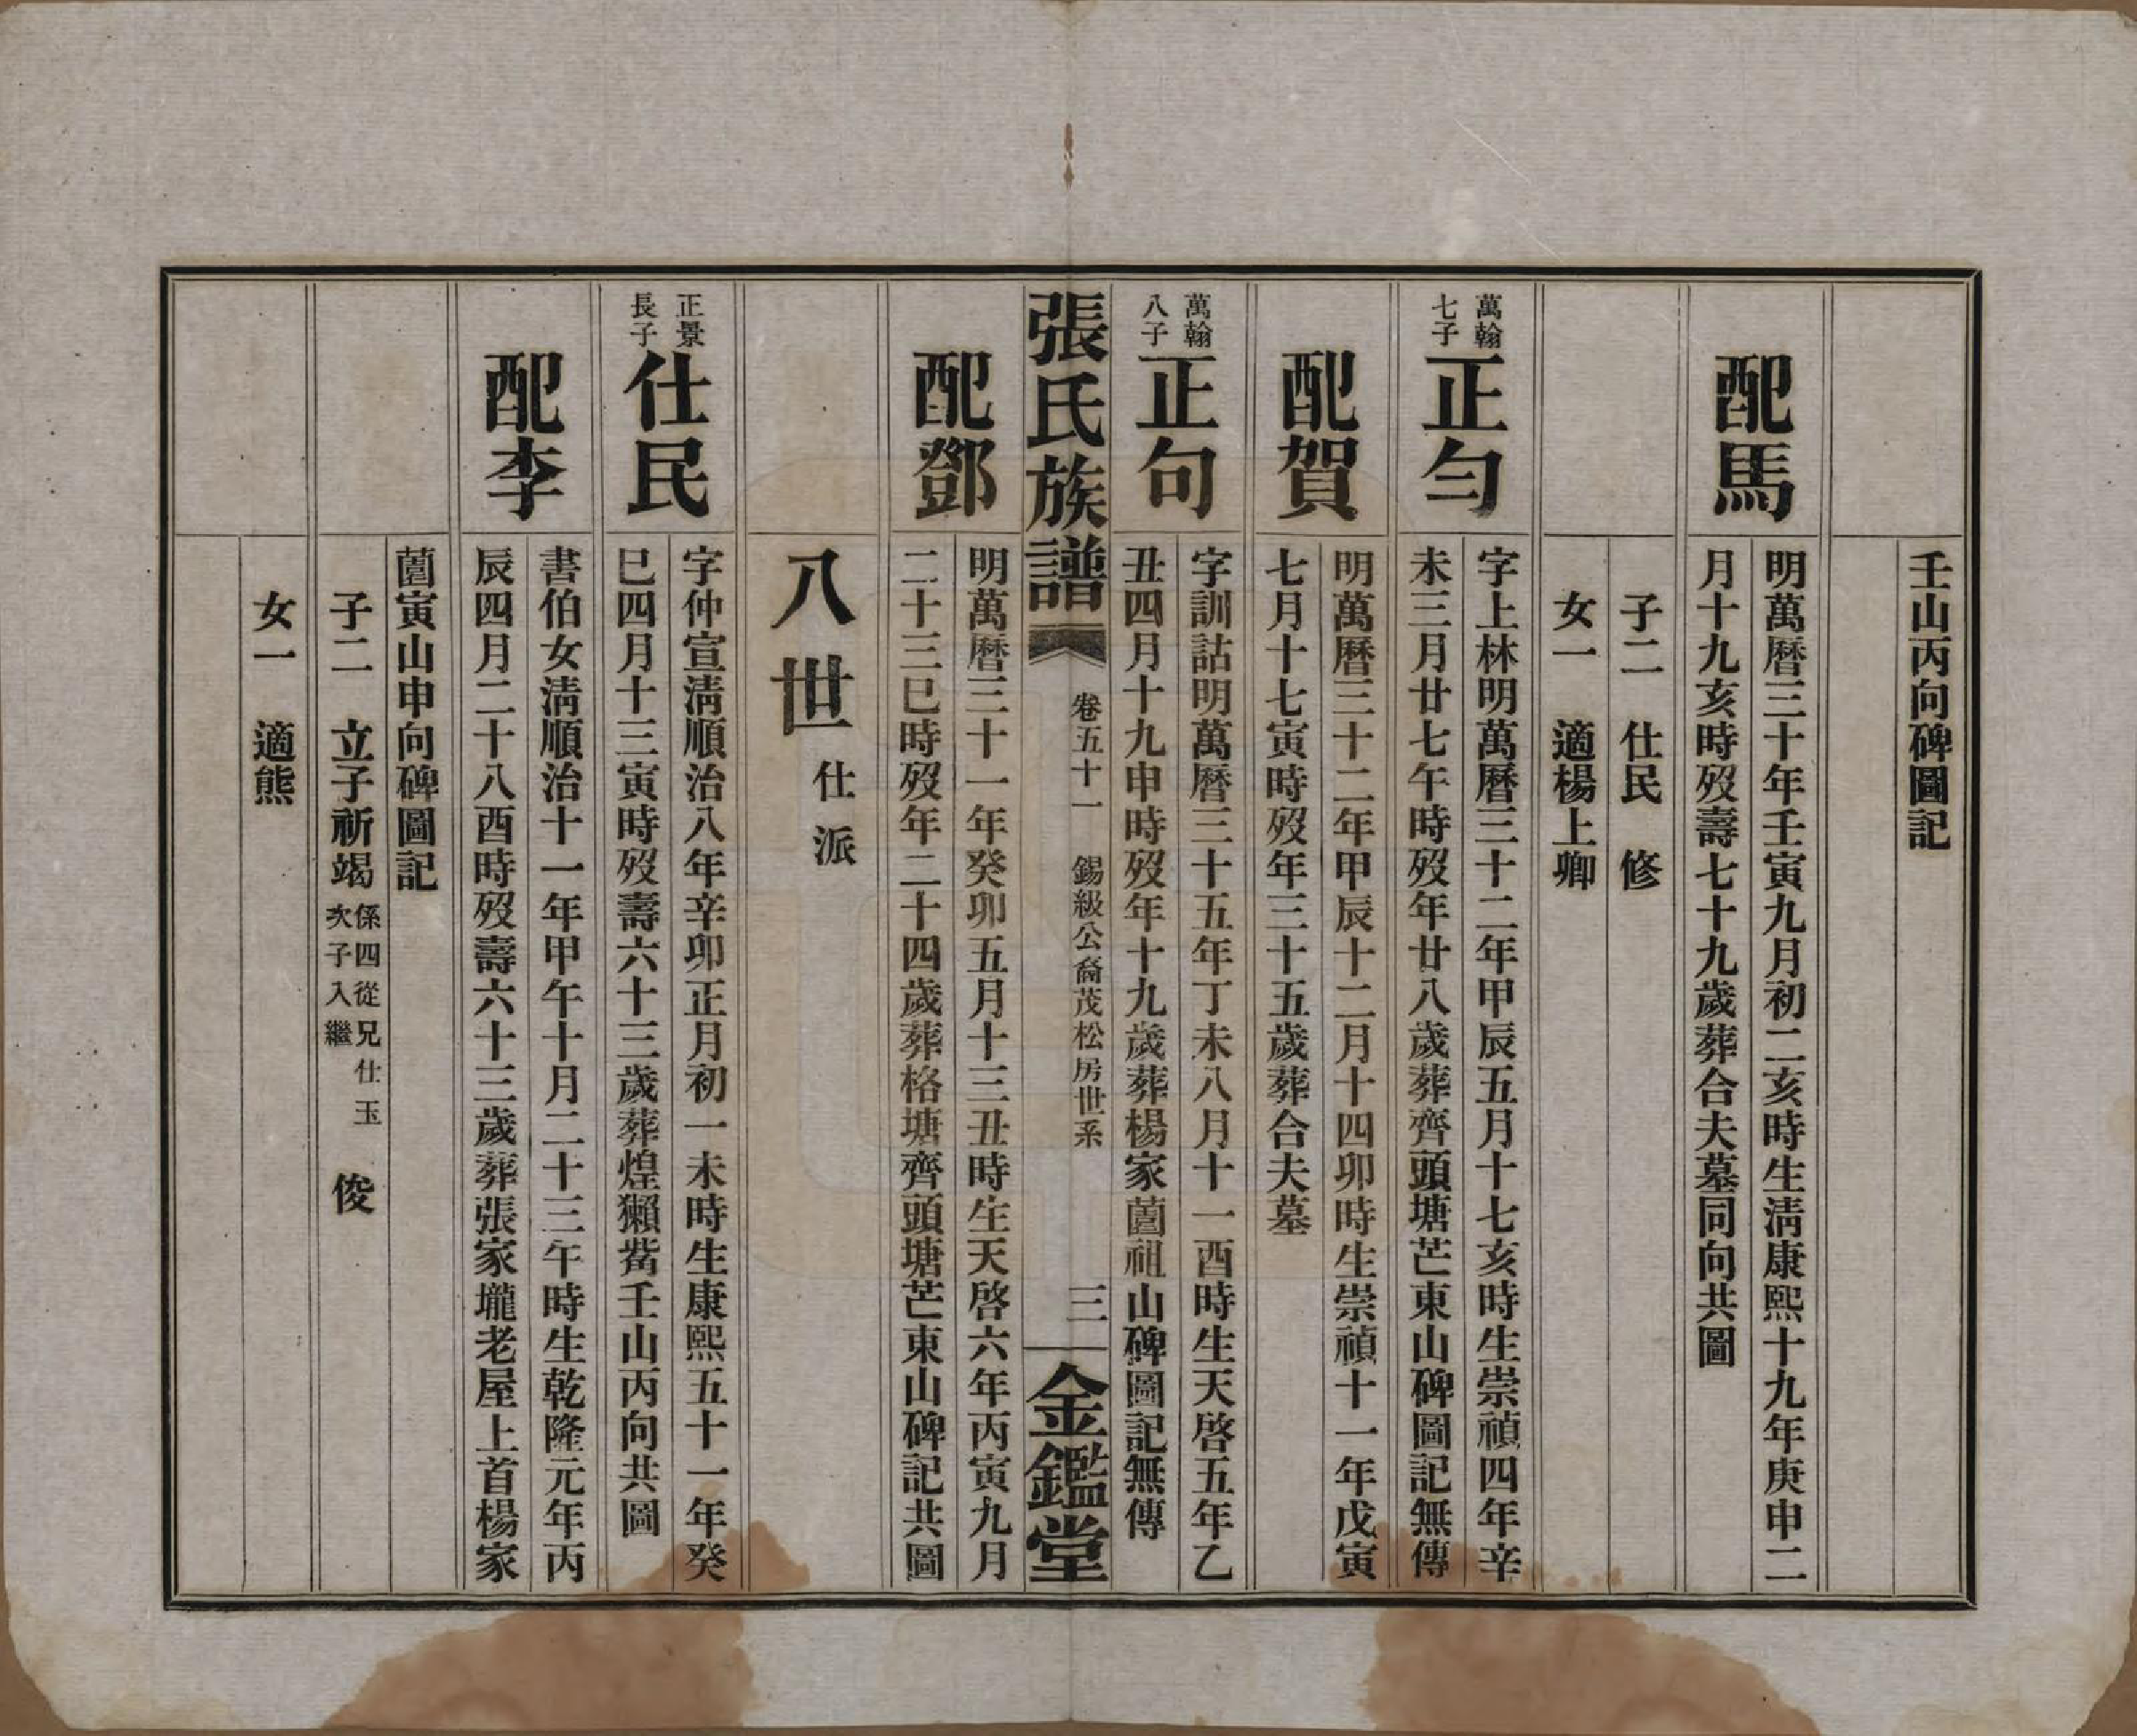 壬山丙向碑圖記
配馬
明萬曆三十年壬寅九月初二亥時生淸康熙十九年庚申二
月十九亥時歿壽七十九歲葬合夫墓同向共圖
子二　仕民　修
女一　適楊上卿
萬翰
七子
正勻
字上林明萬曆三十二年甲辰五月十七亥時生崇禎四年辛
未三月廿七午時歿年廿八歲葬齊頭塘芒東山碑圖記無傳
配賀
明萬曆三十二年甲辰十二月十四卯時生崇禎十一年戊寅
七月十七寅時歿年三十五歲葬合夫墓
萬翰
八子
正句
字訓詁明萬曆三十五年丁未八月十一酉時生天啓五年乙
丑四月十九申時歿年十九歲葬楊家薗祖山碑圖記無傳
張氏族譜
卷五十一　錫級公裔茂松房世系
三
金鑑堂
配鄧
明萬曆三十一年癸卯五月十三丑時生天啓六年丙寅九月
二十三巳時歿年二十四歲葬格塘齊頭塘芒東山碑記共圖
八世
仕派
正景
長子
仕民
字仲宣淸順治八年辛卯正月初一未時生康熙五十一年癸
巳四月十三寅時歿壽六十三歲葬煌獺觜壬山丙向共圖
配李
書伯女淸順治十一年甲午十月二十三午時生乾隆元年丙
辰四月二十八酉時歿壽六十三歲葬張家壠老屋上首楊家
薗寅山申向碑圖記
子二　立子祈竭　係四從兄仕玉
次子入繼　俊
女一　適熊